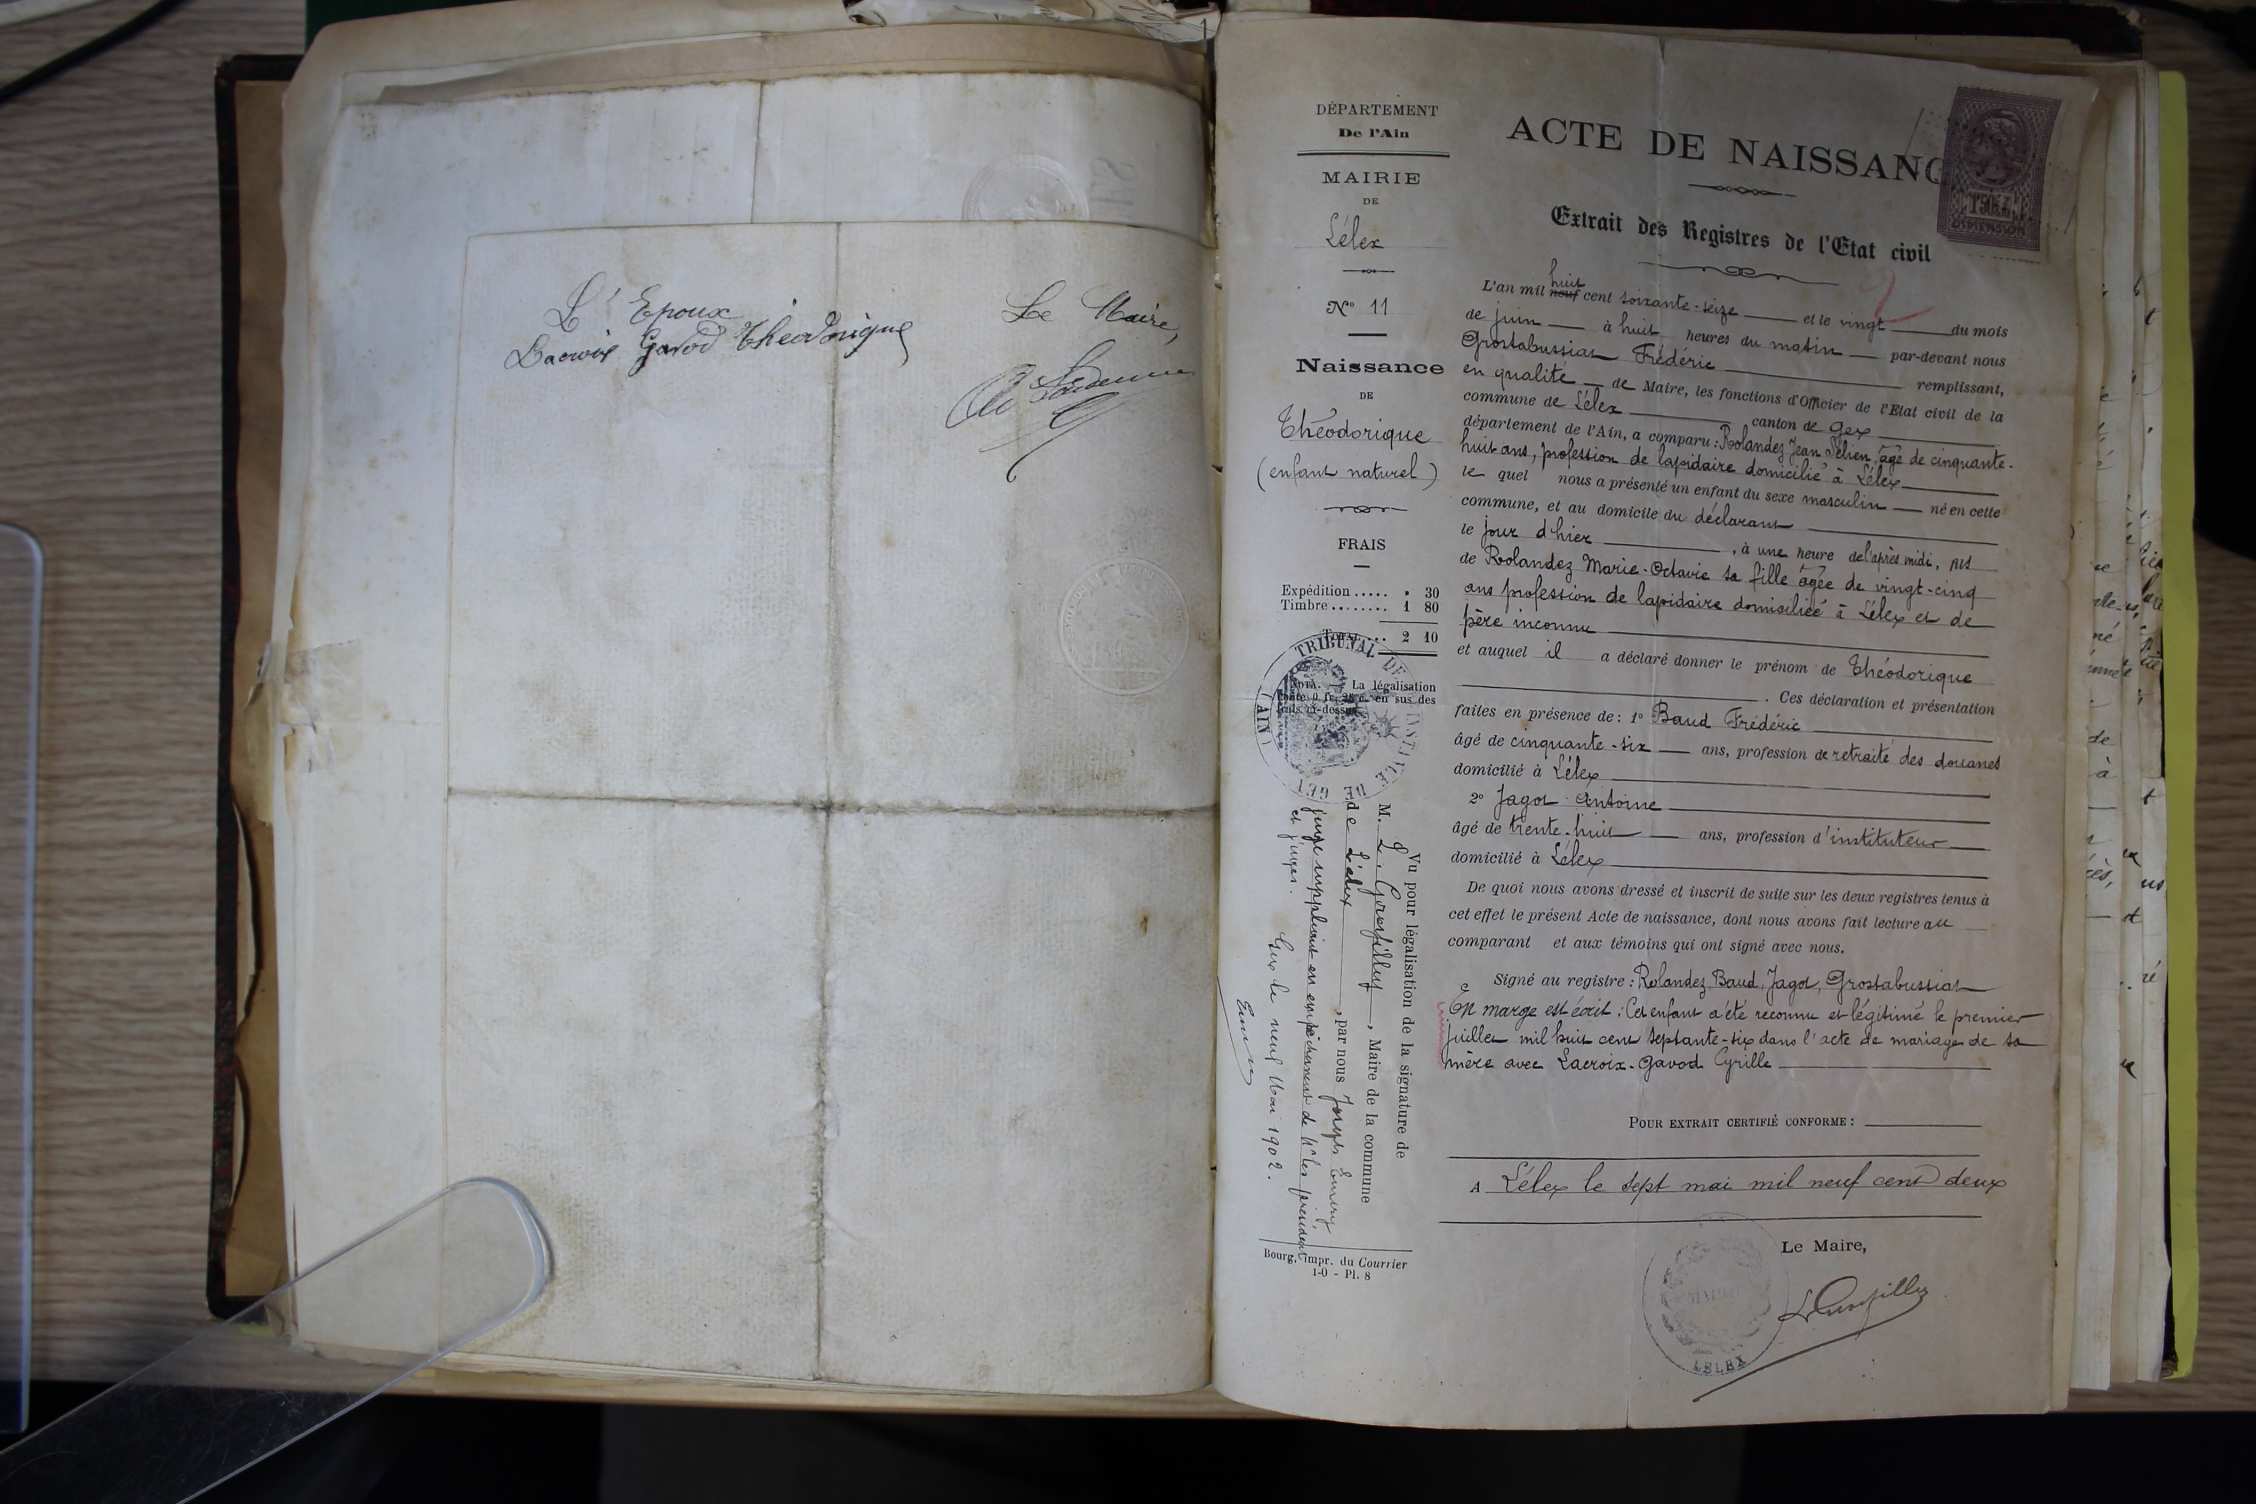 L'Epoux
Lacroix Gavod Théodorique
Le Maire,
DÉPARTEMENT
De l'Ain
MAIRIE
DE
Lélex
N° 11
Naissance
DE
Théodorique
(enfant naturel)
FRAIS
Expédition ..... " 30
Timbre ........ 1 80
TOTAL ... 2 10
NOTA. — La légalisation
coûte 0 fr. 25 c. en sus des
frais ci-dessus.
TRIBUNAL DE 1re INSTANCE DE GEX (AIN)
Vu pour légalisation de la signature de
M. L. Grosfilley, Maire de la commune
de Lélex, par nous
juge suppléant en empêchement de Mrs les président
et juges.
Gex le neuf Mai 1902.
Bourg, impr. du Courrier
1-0 - Pl. 8
ACTE DE NAISSANC
Extrait des Registres de l'Etat civil
huit
L'an mil neuf cent soixante-seize et le vingt du mois
de juin à huit heures du matin par-devant nous
Grostabussiat Frédéric remplissant,
en qualité de Maire, les fonctions d'Officier de l'Etat civil de la
commune de Lélex canton de Gex
département de l'Ain, a comparu : Rolandez Jean Félien âgé de cinquante-
huit ans, profession de lapidaire domicilié à Lélex
le quel nous a présenté un enfant du sexe masculin né en cette
commune, et au domicile du déclarant
le jour d'hier, à une heure de l'après midi, fils
de Rolandez Marie-Octavie sa fille âgée de vingt-cinq
ans profession de lapidaire domiciliée à Lélex et de
père inconnu
et auquel il a déclaré donner le prénom de Théodorique
. Ces déclaration et présentation
faites en présence de : 1° Baud Frédéric
âgé de cinquante-six ans, profession de retraité des douanes
domicilié à Lélex
2° Jagot Antoine
âgé de trente-huit ans, profession d'instituteur
domicilié à Lélex
De quoi nous avons dressé et inscrit de suite sur les deux registres tenus à
cet effet le présent Acte de naissance, dont nous avons fait lecture au
comparant et aux témoins qui ont signé avec nous.
Signé au registre : Rolandez, Baud, Jagot, Grostabussiat
En marge est écrit : Cet enfant a été reconnu et légitimé le premier
Juillet mil huit cent septante-six dans l'acte de mariage de sa
mère avec Lacroix-Gavod Cyrille
POUR EXTRAIT CERTIFIÉ CONFORME :
A Lélex le sept mai mil neuf cent deux
Le Maire,
L Grosfilley
LELEX